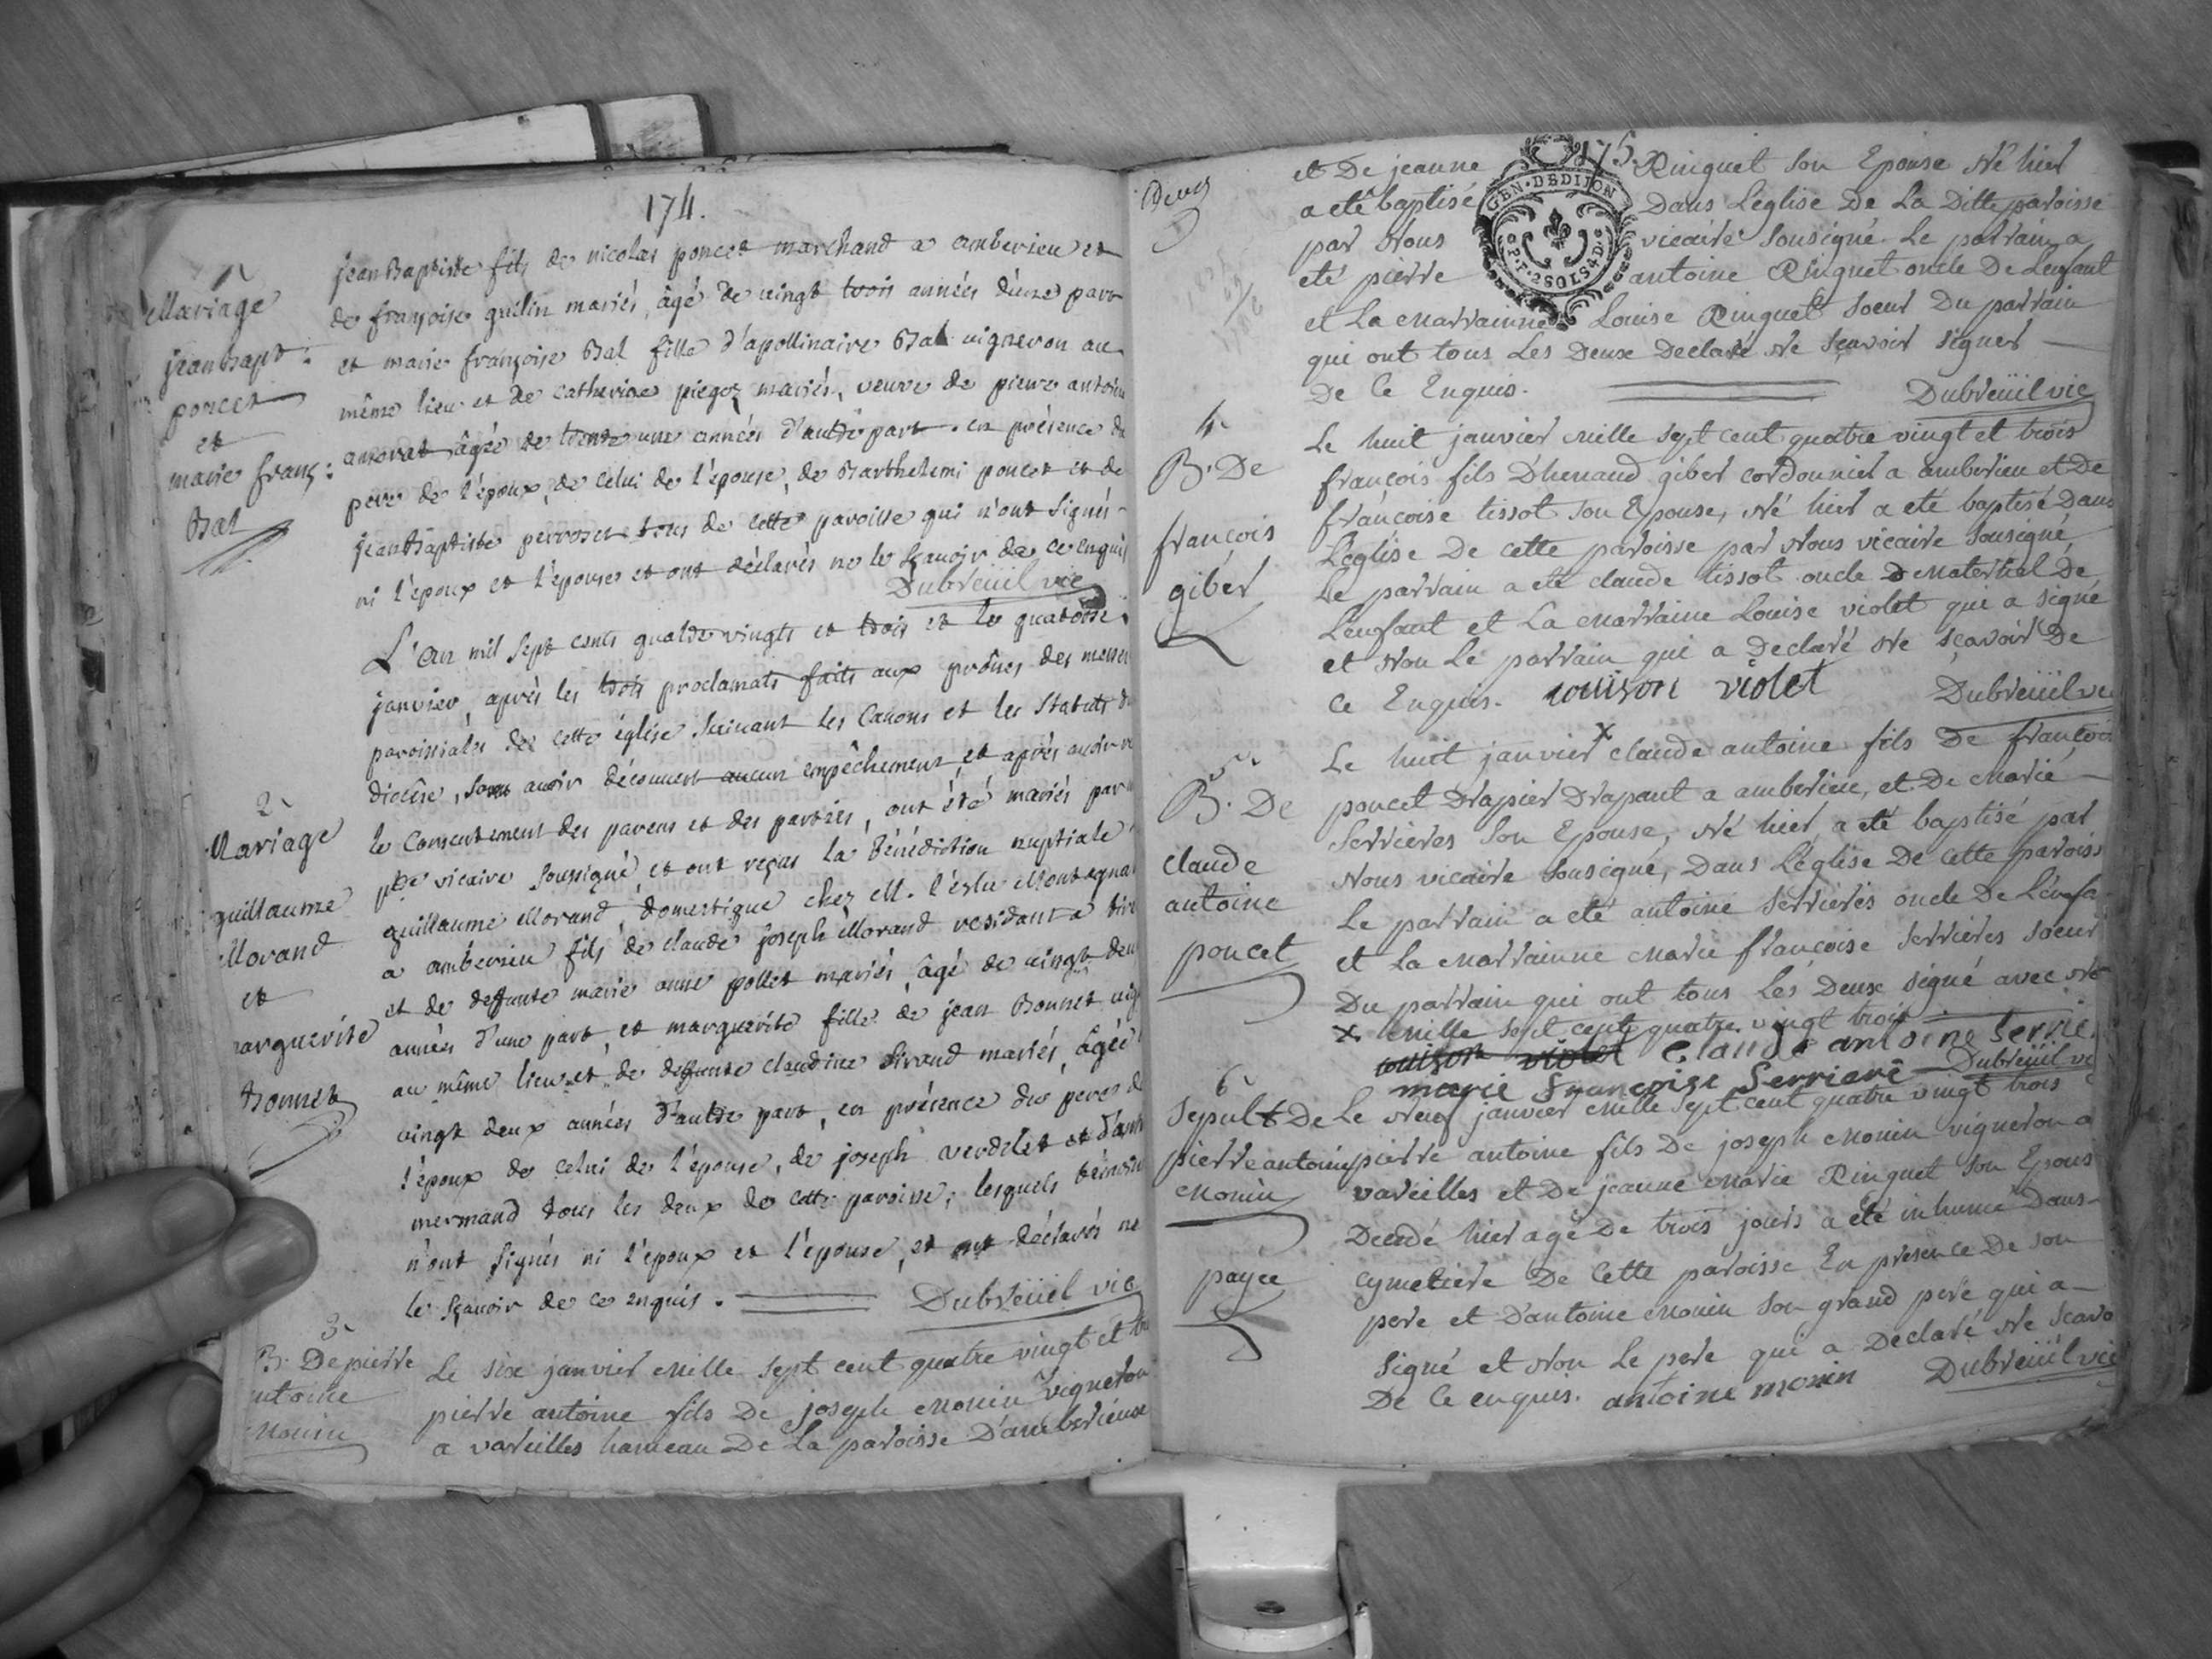 174.
1
Mariage
jean Bapt:
poncet
et
marie franç:
Bal
jean Baptiste fils de nicolas poncet marchand a amberieu et
de françoise guilin mariés, âgé de vingt trois années d'une part
et marie françoise Bal fille d'apollinaire Bal vigneron au
même lieu et de catherine piegoz mariés, veuve de pierre antoine
amorat âgée de trente une années d'autre part. en présence du
pere de l'époux, de celui de l'épouse, de Barthelemi poncet et de
jean Baptiste perroset tous de cette paroisse qui n'ont signés
ni l'époux et l'épouse et ont déclarés ne le sçavoir de ce enquis
Dubreüil vic
2
Mariage
guillaume
Morand
et
marguerite
Bonnet
L'an mil sept cents quatre vingts et trois et le quatorse
janvier, après les trois proclamats faits aux prônes des messes
paroissiales de cette église suivant les Canons et les Statuts du
diocèse, sans avoir découvert aucun empêchement et après avoir vu
le Consentement des parens et des parties, ont été mariés par
vicaire soussigné, et ont reçus la bénédiction nuptiale
guillaume Morand, domestique chez M. l'eslu Montagnat
a amberieu fils de claude joseph Morand residant a
et de deffunte marie anne pollet mariés, âgé de vingt deux
années d'une part, et marguerite fille de jean Bonnet vig
au même lieu et de deffunte claudine Sirand mariés, âgée
vingt deux années d'autre part, en présence du pere de
l'époux de celui de l'épouse, de joseph verdelet et d'ant
mermand tous les deux de cette paroisse, lesquels témoins
n'ont signés ni l'époux et l'épouse, et ont déclarés ne
le sçavoir de ce enquis.
Dubreüil vic
3
B. De pierre
antoine
Monin
Le six janvier mille sept cent quatre vingt et trois
pierre antoine fils De joseph Monin vigneron
a vareilles hameau De La paroisse D'amberieux
175.
GEN. DE DIJON
P.P. 2 SOLS 4 D.
et De jeanne Ringuet son Epouse Né hier
a eté baptisé Dans L'eglise De La Ditte paroisse
par Nous vicaire sousigné. Le parrain a
eté pierre antoine Ringuet oncle De L'enfant
et La Marrainne Louise Ringuet soeur Du parrain
qui ont tous Les Deux Declaré Ne sçavoir signer
De Ce Enquis.
Dubreüil vic
4
B. De
françois
giber
Le huit janvier mille sept cent quatre vingt et trois
françois fils D'henaud giber cordonnier a amberieu et De
françoise tissot son Epouse, Né hier a eté baptisé Dans
L'eglise De cette paroisse par Nous vicaire sousigné
Le parrain a eté claude tissot oncle maternel De
L'enfant et La Marraine Louise violet qui a signé
et Non Le parrain qui a Declaré Ne sçavoir De
Ce Enquis. louison violet
Dubreüil vic
5
B. De
claude
antoine
poncet
Le huit janvier x claude antoine fils De françois
poncet Drapier Drapant a amberieu, et De Marie
Serrieres son Epouse, Né hier, a eté baptisé par
Nous vicaire sousigné, Dans L'eglise De cette paroisse
Le parrain a eté antoine Serrieres oncle De L'enfa
et La Marrainne Marie françoise Serrieres soeur
Du parrain qui ont tous Les Deux signé avec No
x Mille sept cent quatre vingt trois
louison violet Claude antoine Serrie
marie Françoise Serriere Dubreüil vic
6
Sepult De
pierre antoine
Monin
payee
Le Neuf janvier Mille sept cent quatre vingt trois
pierre antoine fils De joseph Monin vigneron a
vareilles et De jeanne Marie Ringuet son Epouse
Decedé hier agé De trois jours a eté inhumé Dans
Cymetiere De Cette paroisse En presence De son
pere et D'antoine Monin son grand pere qui a
signé et Non Le pere qui a Declaré Ne scavo
De Ce enquis. antoine monin
Dubreüil vic